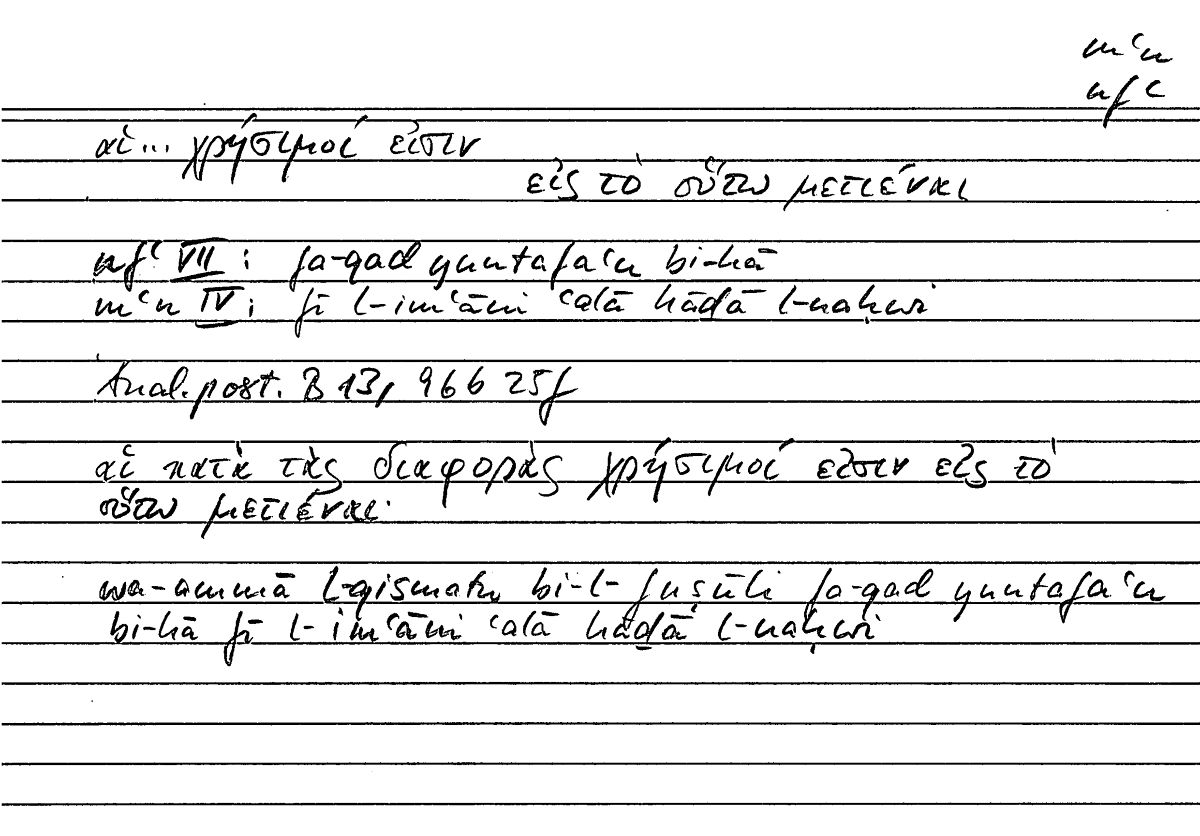 mʿn
nfʿ
αἱ... χρήσιμοί εἰσιν
εἰς τὸ οὕτω μετιέναι
nfʿ VII: fa-qad yuntafaʿu bi-hā
mʿn IV: fī l-imʿāni ʿalā hāḏā l-naḥwi
Anal. post. B 13, 96b 25f
αἱ κατὰ τὰς διαφορὰς χρήσιμοί εἰσιν εἰς τὸ
οὕτω μετιέναι·
wa-ammā l-qismatu bi-l-fuṣūli fa-qad yuntafaʿu
bi-hā fī l-imʿāni ʿalā hāḏā l-naḥwi